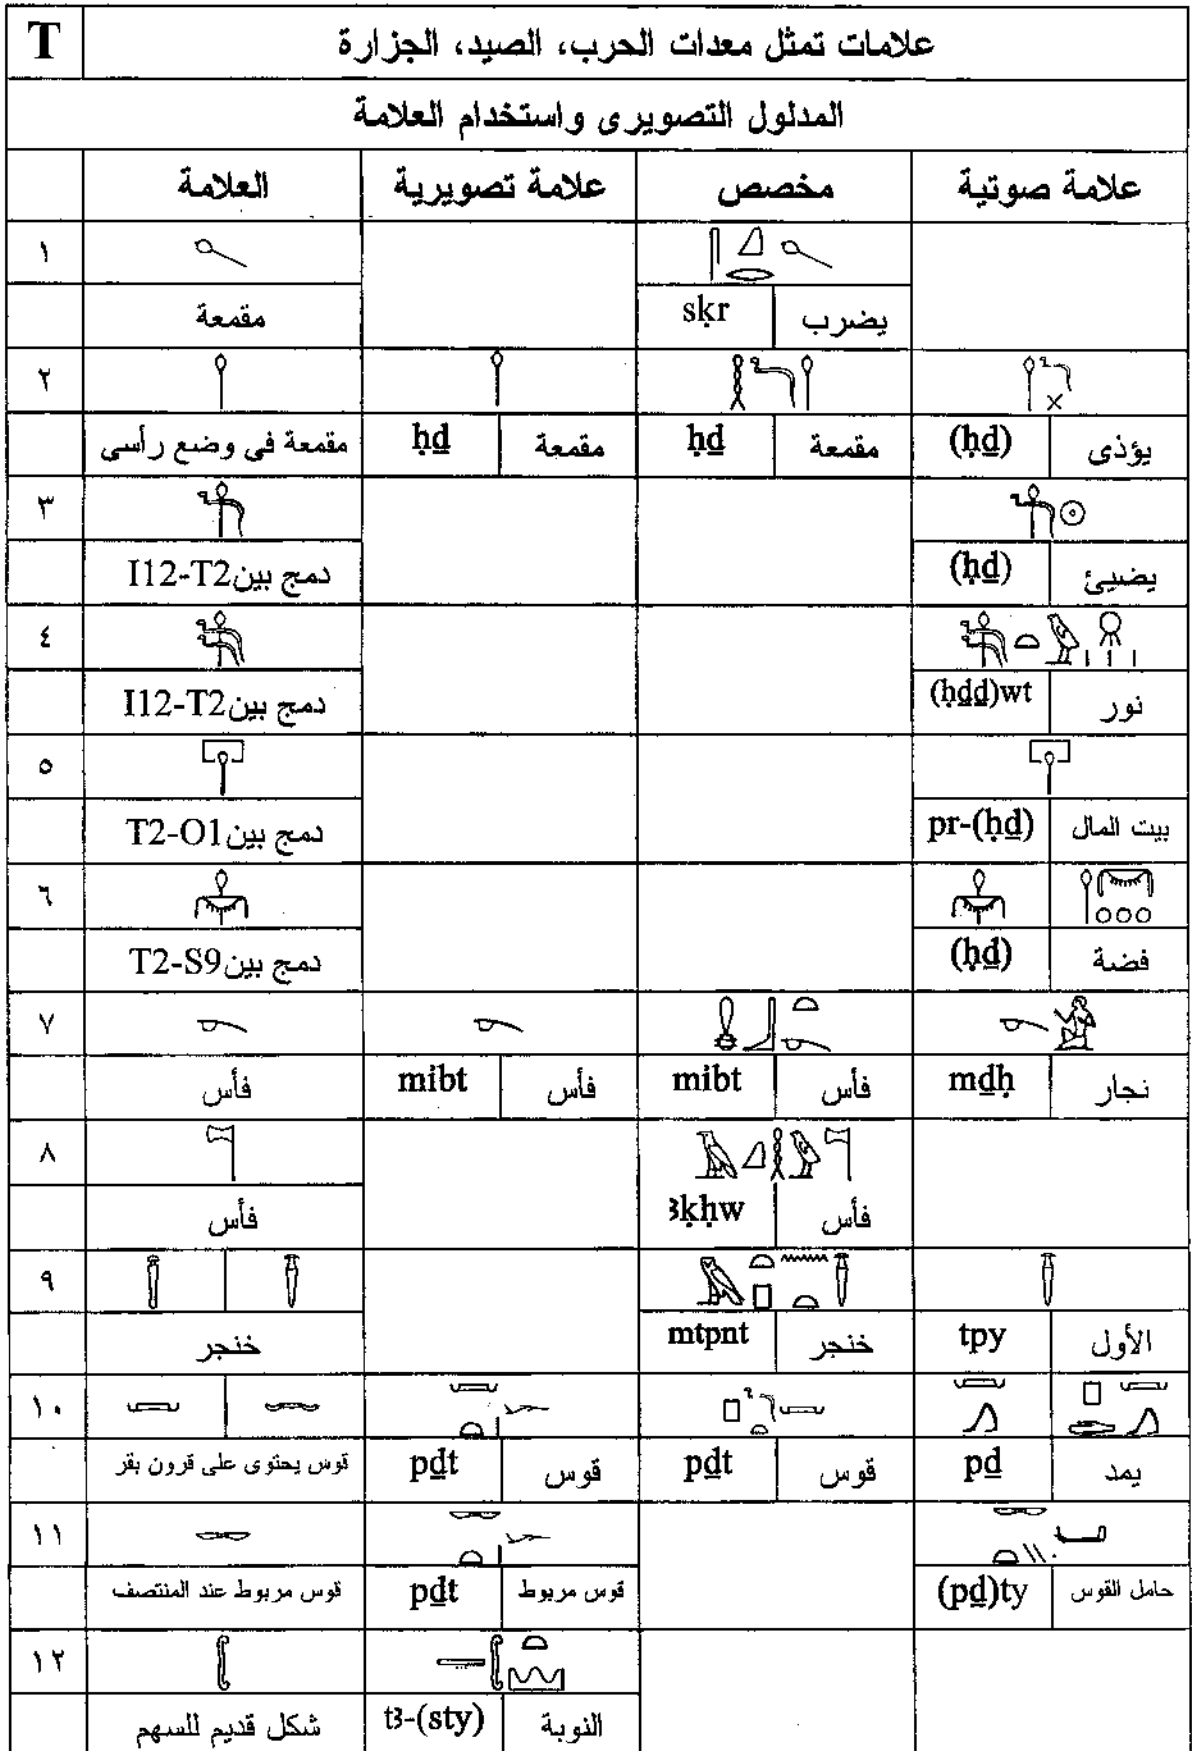 T علامات تمثل معدات الحرب، الصيد، الجزارة
المدلول التصويرى واستخدام العلامة
العلامة علامة تصويرية مخصص علامة صوتية
١
مقمعة sḳr يضرب
٢
مقمعة فى وضع رأسى ḥḏ مقمعة ḥḏ مقمعة (ḥḏ) يؤذى
٣
دمج بين I12-T2 (ḥḏ) يضيئ
٤
دمج بين I12-T2 (ḥḏḏ)wt نور
٥
دمج بين T2-O1 pr-(ḥḏ) بيت المال
٦
دمج بين T2-S9 (ḥḏ) فضة
٧
فأس mibt فأس mibt فأس mḏḥ نجار
٨
فأس ꜣḳḥw فأس
٩
خنجر mtpnt خنجر tpy الأول
١٠
قوس يحتوى على قرون بقر pḏt قوس pḏt قوس pḏ يمد
١١
قوس مربوط عند المنتصف pḏt قوس مربوط (pḏ)ty حامل القوس
١٢
شكل قديم للسهم tꜣ-(sty) النوبة